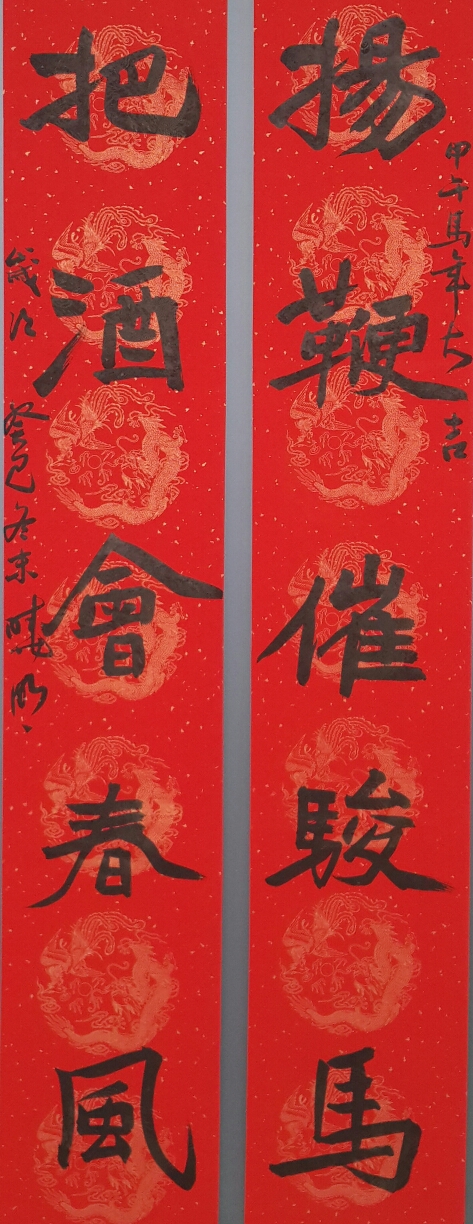 甲午馬年大吉
揚鞭催駿馬
把酒會春風
歲次癸巳冬末曉明